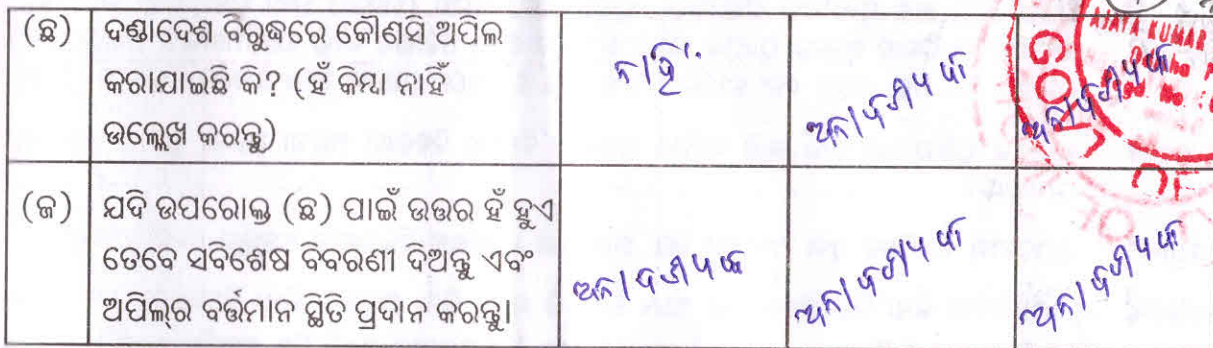 (ଛ) ଦଣ୍ଡାଦେଶ ବିରୁଦ୍ଧରେ କୌଣସି ଅପିଲ
କରାଯାଇଛି କି? (ହଁ କିମ୍ବା ନାହିଁ
ଉଲ୍ଲେଖ କରନ୍ତୁ)
ନାହିଁ
ଅନାବଶ୍ୟକ
ଅନାବଶ୍ୟକ
KUMAR
(ଜ) ଯଦି ଉପରୋକ୍ତ (ଛ) ପାଇଁ ଉତ୍ତର ହଁ ହୁଏ
ତେବେ ସବିଶେଷ ବିବରଣୀ ଦିଅନ୍ତୁ ଏବଂ
ଅପିଲ୍‌ର ବର୍ତ୍ତମାନ ସ୍ଥିତି ପ୍ରଦାନ କରନ୍ତୁ।
ଅନାବଶ୍ୟକ
ଅନାବଶ୍ୟକ
ଅନାବଶ୍ୟକ